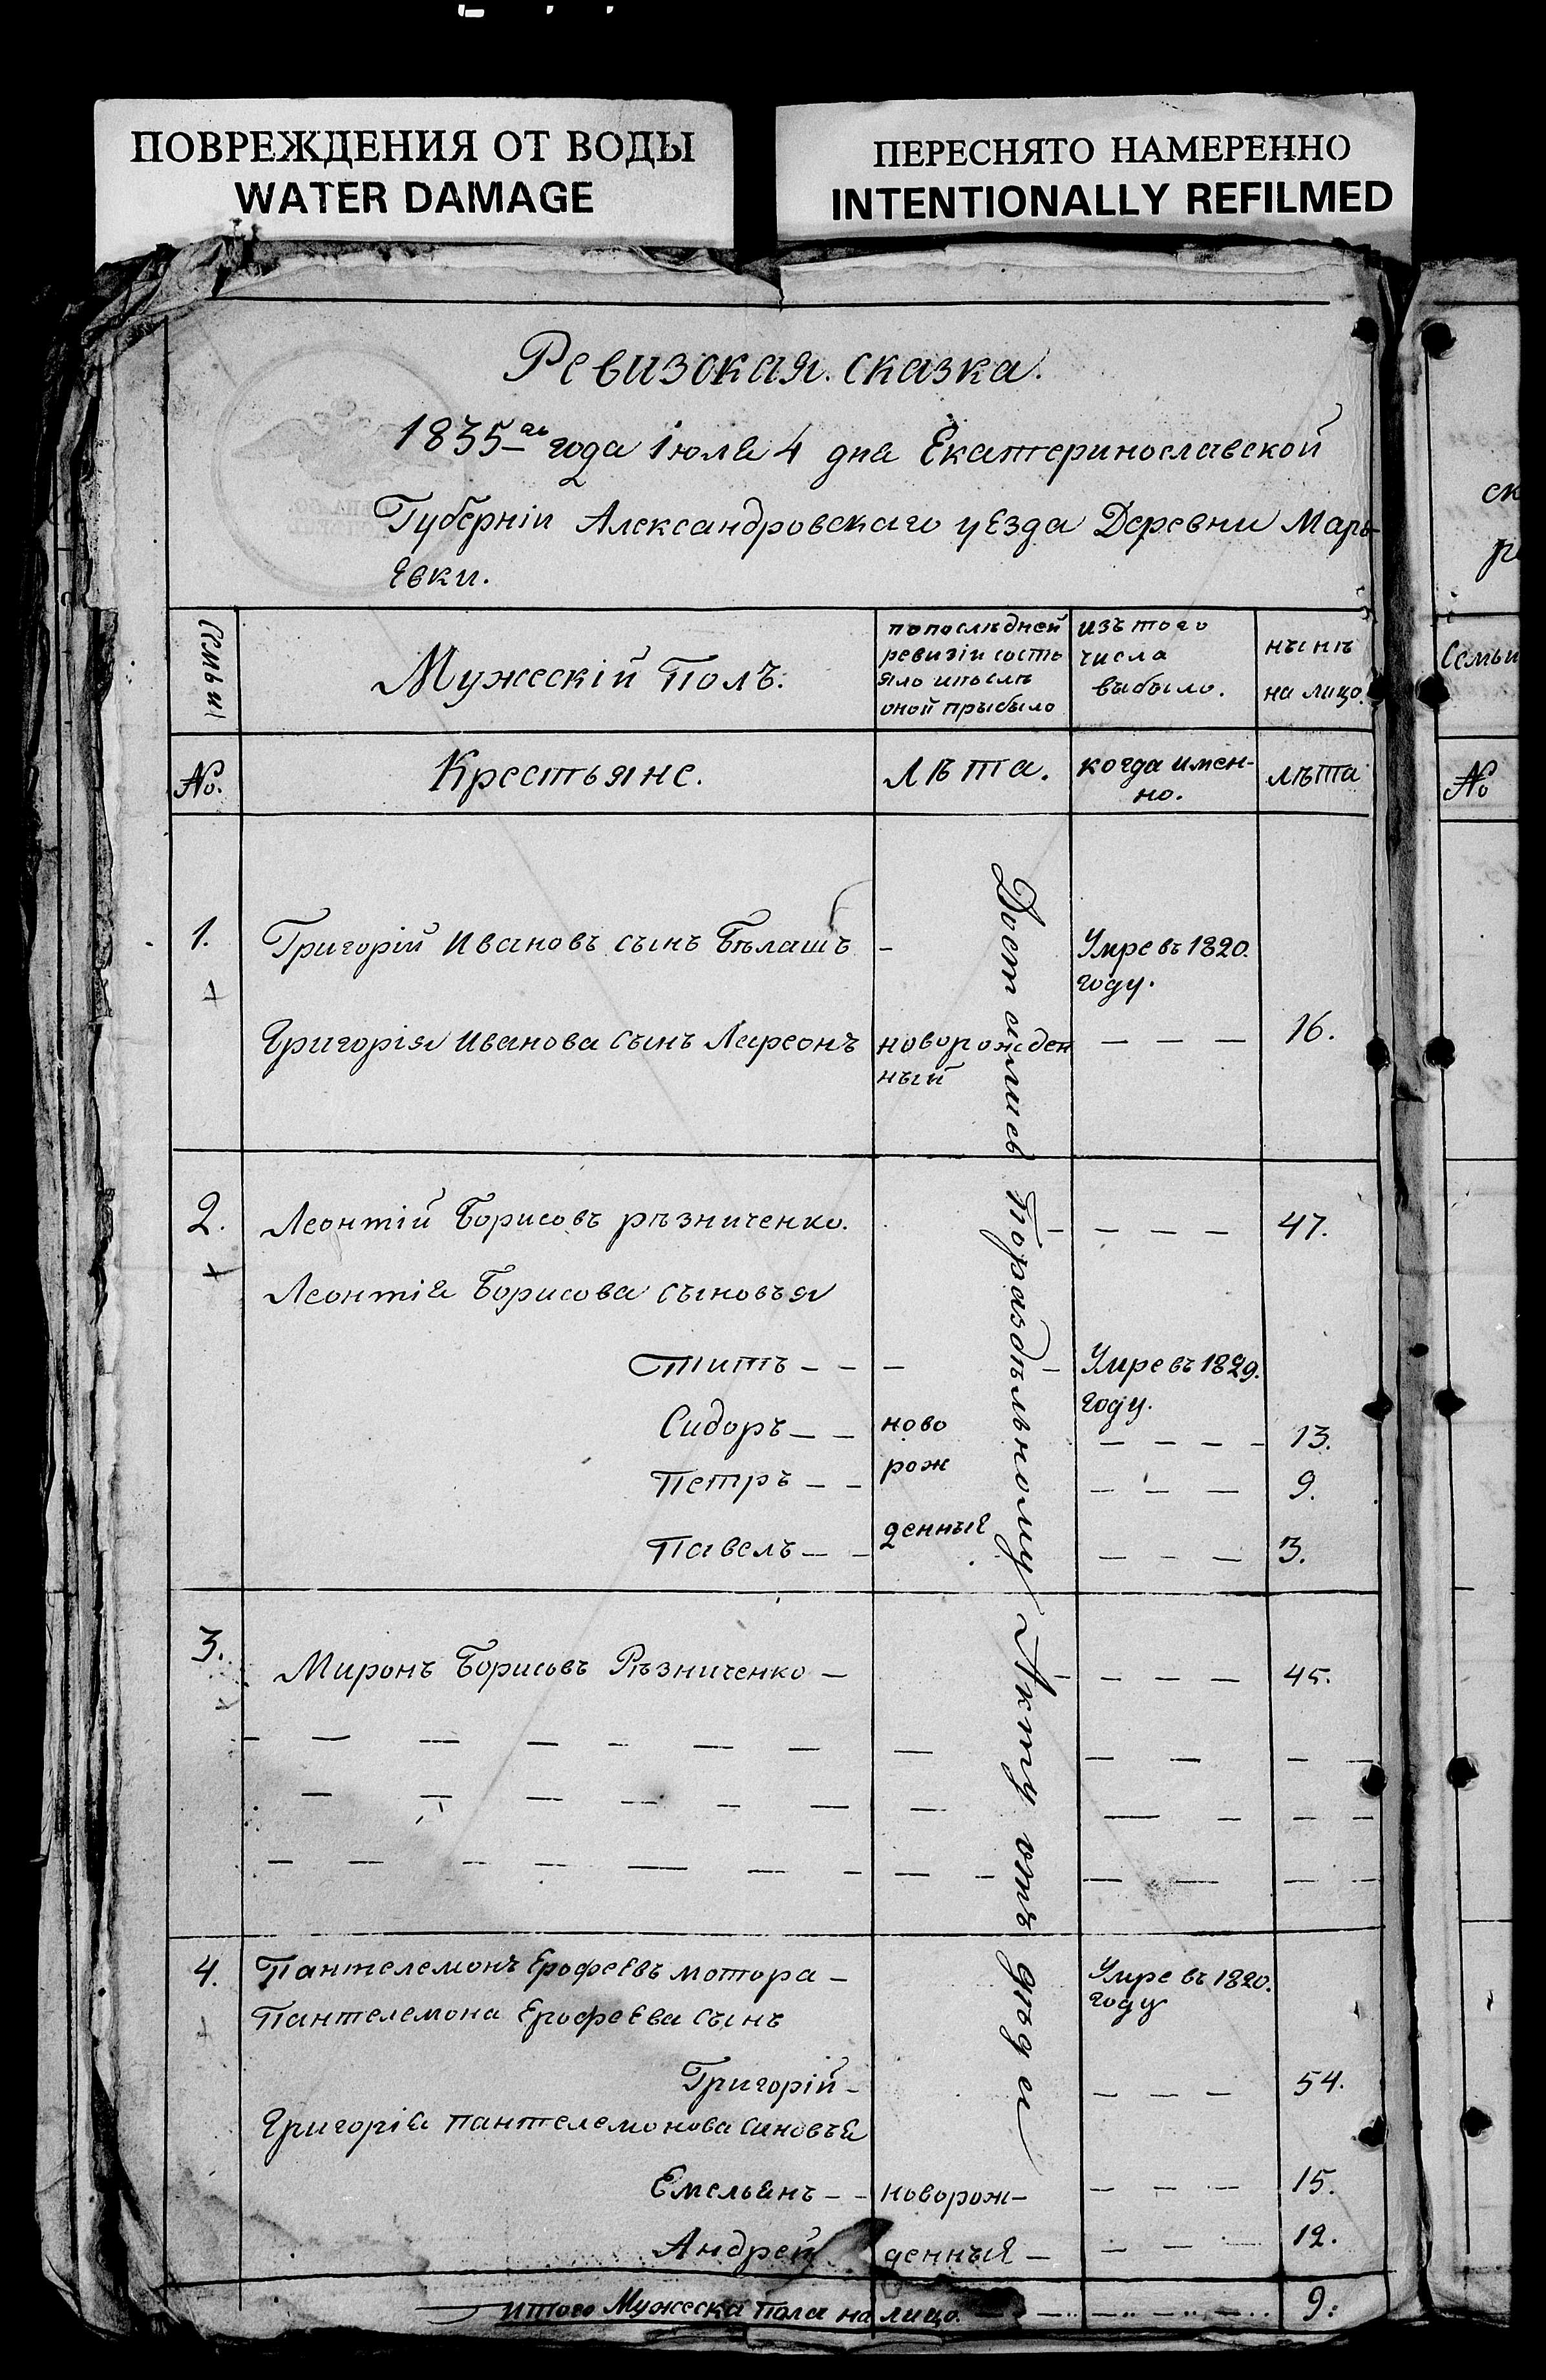 ПОВРЕЖДЕНИЯ ОТ ВОДЫ
WATER DAMAGE
ПЕРЕСНЯТО НАМЕРЕННО
INTENTIONALLY REFILMED
Ревизская сказка.
1835го года Iюля 4 дня Екатеринославской
Губернiи Александровскаго уезда Деревни Марь-
евки.
Семьи
Мужескiй Полъ:
попослѣдней
ревизiи состо
яло ипослѣ
оной прыбыло
изъ того
числа
выбыло.
нынѣ
на лицо.
№.
Крестьяне.
Лѣта.
когда имен-
но.
лѣта
1.
Григорiй Ивановъ сынъ Бѣлашъ -
Умре въ 1820.
году.
Григорiя Иванова сынъ Ларсонъ
новорожден
ный
— — —
16.
2.
Леонтiй Борисовъ рѣзниченко.
— — — —
47.
Леонтiя Борисова сыновъя
Титъ — — —
Умре въ 1829.
году.
Сидоръ — —
ново
— — — —
13.
Петръ — —
рож
— — —
9.
Павелъ — —
денные
— — —
3.
3.
Миронъ Борисовъ Рѣзниченко —
— — —
45.
4.
Пантелемонъ Ерофеевъ мотора —
Умре въ 1820.
году
Пантелемона Ерофеева сынъ
Григорiй —
— — —
54.
Григорiя пантелемонова синовъя
Емельянъ — —
новорож-
— — —
15.
Андрей
денные —
— — —
12.
итого Мужеска пола на лицо.
9:
Достались Пораздѣльному Акту отъ дѣда
Семьи
№